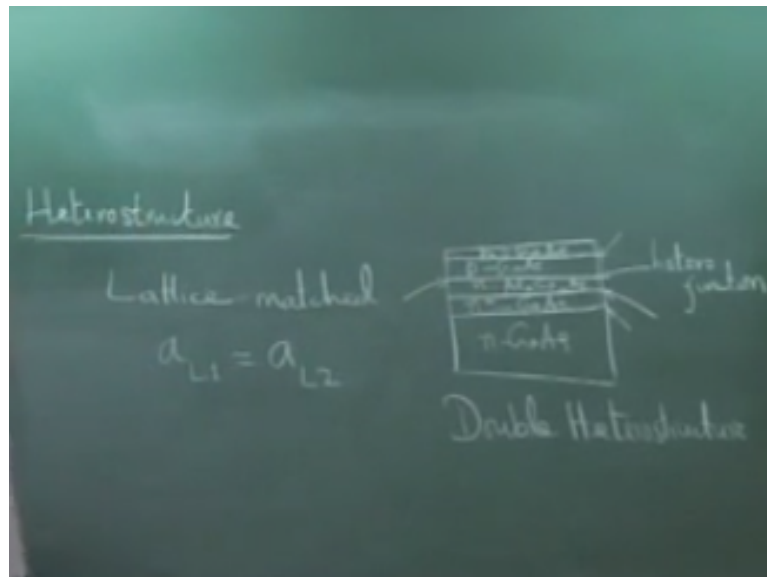 Heterostructure
Lattice matched
a_L1 = a_L2
p-GaAs
n-GaAs
hetero
junction
Double Heterostructure